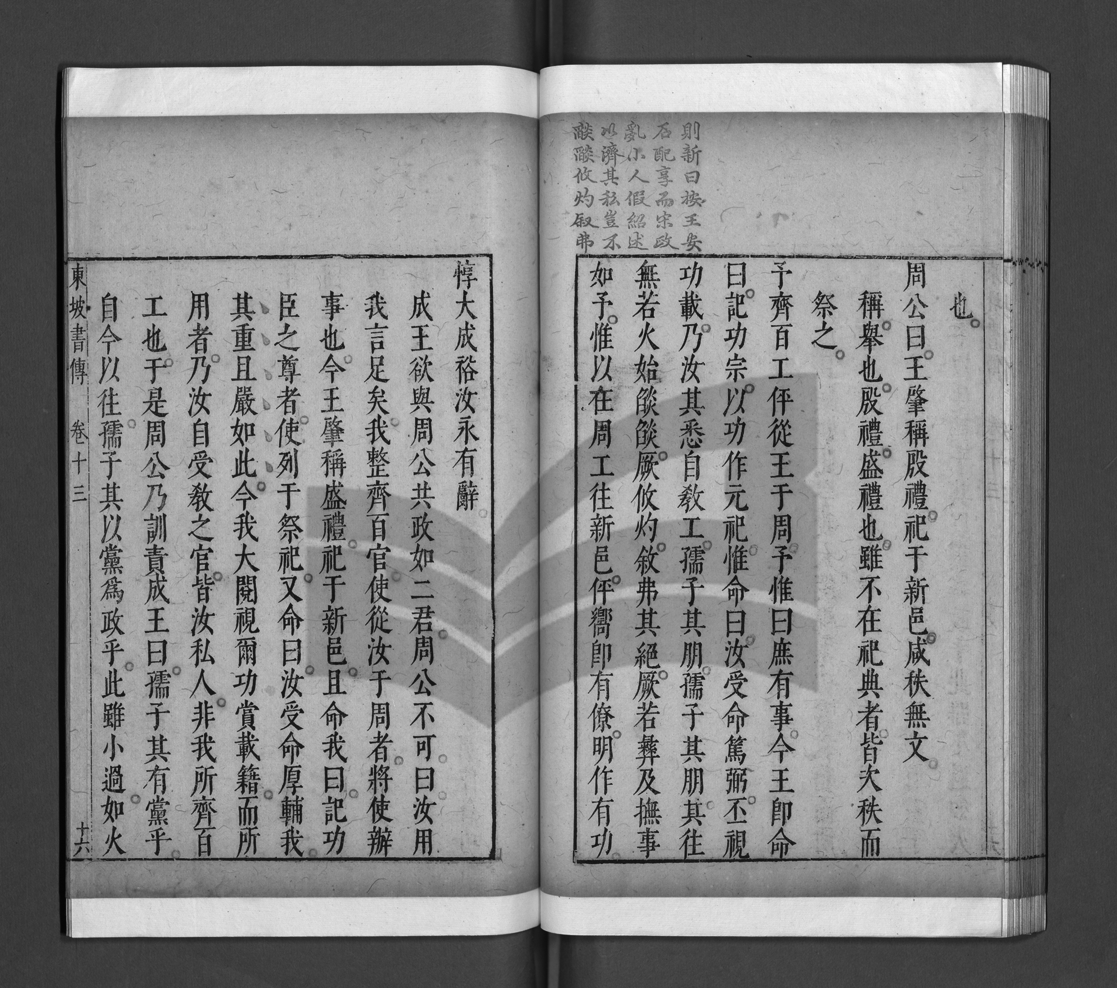 則新曰按王安
石配享而宋政
亂小人假紹述
以濟其私豈不
燄燄攸灼叙弗
也。
周公曰。王肇稱殷禮。祀于新邑。咸秩無文
稱。舉也。殷禮。盛禮也。雖不在祀典者。皆次秩而
祭之。
予齊百工伻從王于周。予惟曰庶有事。今王卽命
曰。記功宗。以功作元祀。惟命曰。汝受命篤弼。丕視
功載。乃汝其悉自敎工。孺子其朋。孺子其朋。其往
無若火始燄燄。厥攸灼。敘弗其絕。厥若彝及撫事
如予。惟以在周工往新邑。伻嚮卽有僚。明作有功。
惇大成裕汝永有辭
成王欲與周公共政如二君。周公不可。曰汝用
我言足矣。我整齊百官。使從汝于周者。將使辦
事也。今王肇稱盛禮。祀于新邑。且命我曰。記功
臣之尊者。使列于祭祀。又命曰。汝受命厚輔我。
其重且嚴如此。今我大閱視爾功賞載籍。而所
用者。乃汝自受敎之官。皆汝私人。非我所齊百
工也。于是周公乃訓責成王曰。孺子其有黨乎。
自今以往。孺子其以黨爲政乎。此雖小過。如火
東坡書傳　卷十三　十六